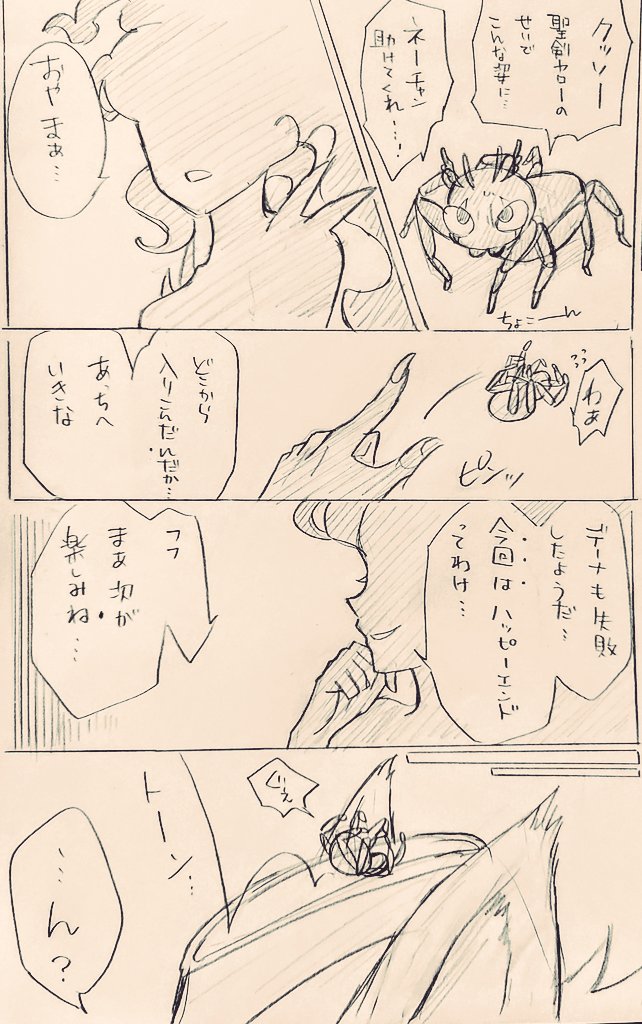 クッソー
聖剣ヤローの
せいで
こんな姿に…
ネーチャン
助けてくれ…!
ちょこーん
おやまぁ…
わぁ
ピンッ
どこから
入りこんだんだか…
あっちへ
いきな
デーナも失敗
したようだ…
今回はハッピーエンド
ってわけ…
フフ
まあ次が
楽しみね…
じぇ
トーン…
…ん?